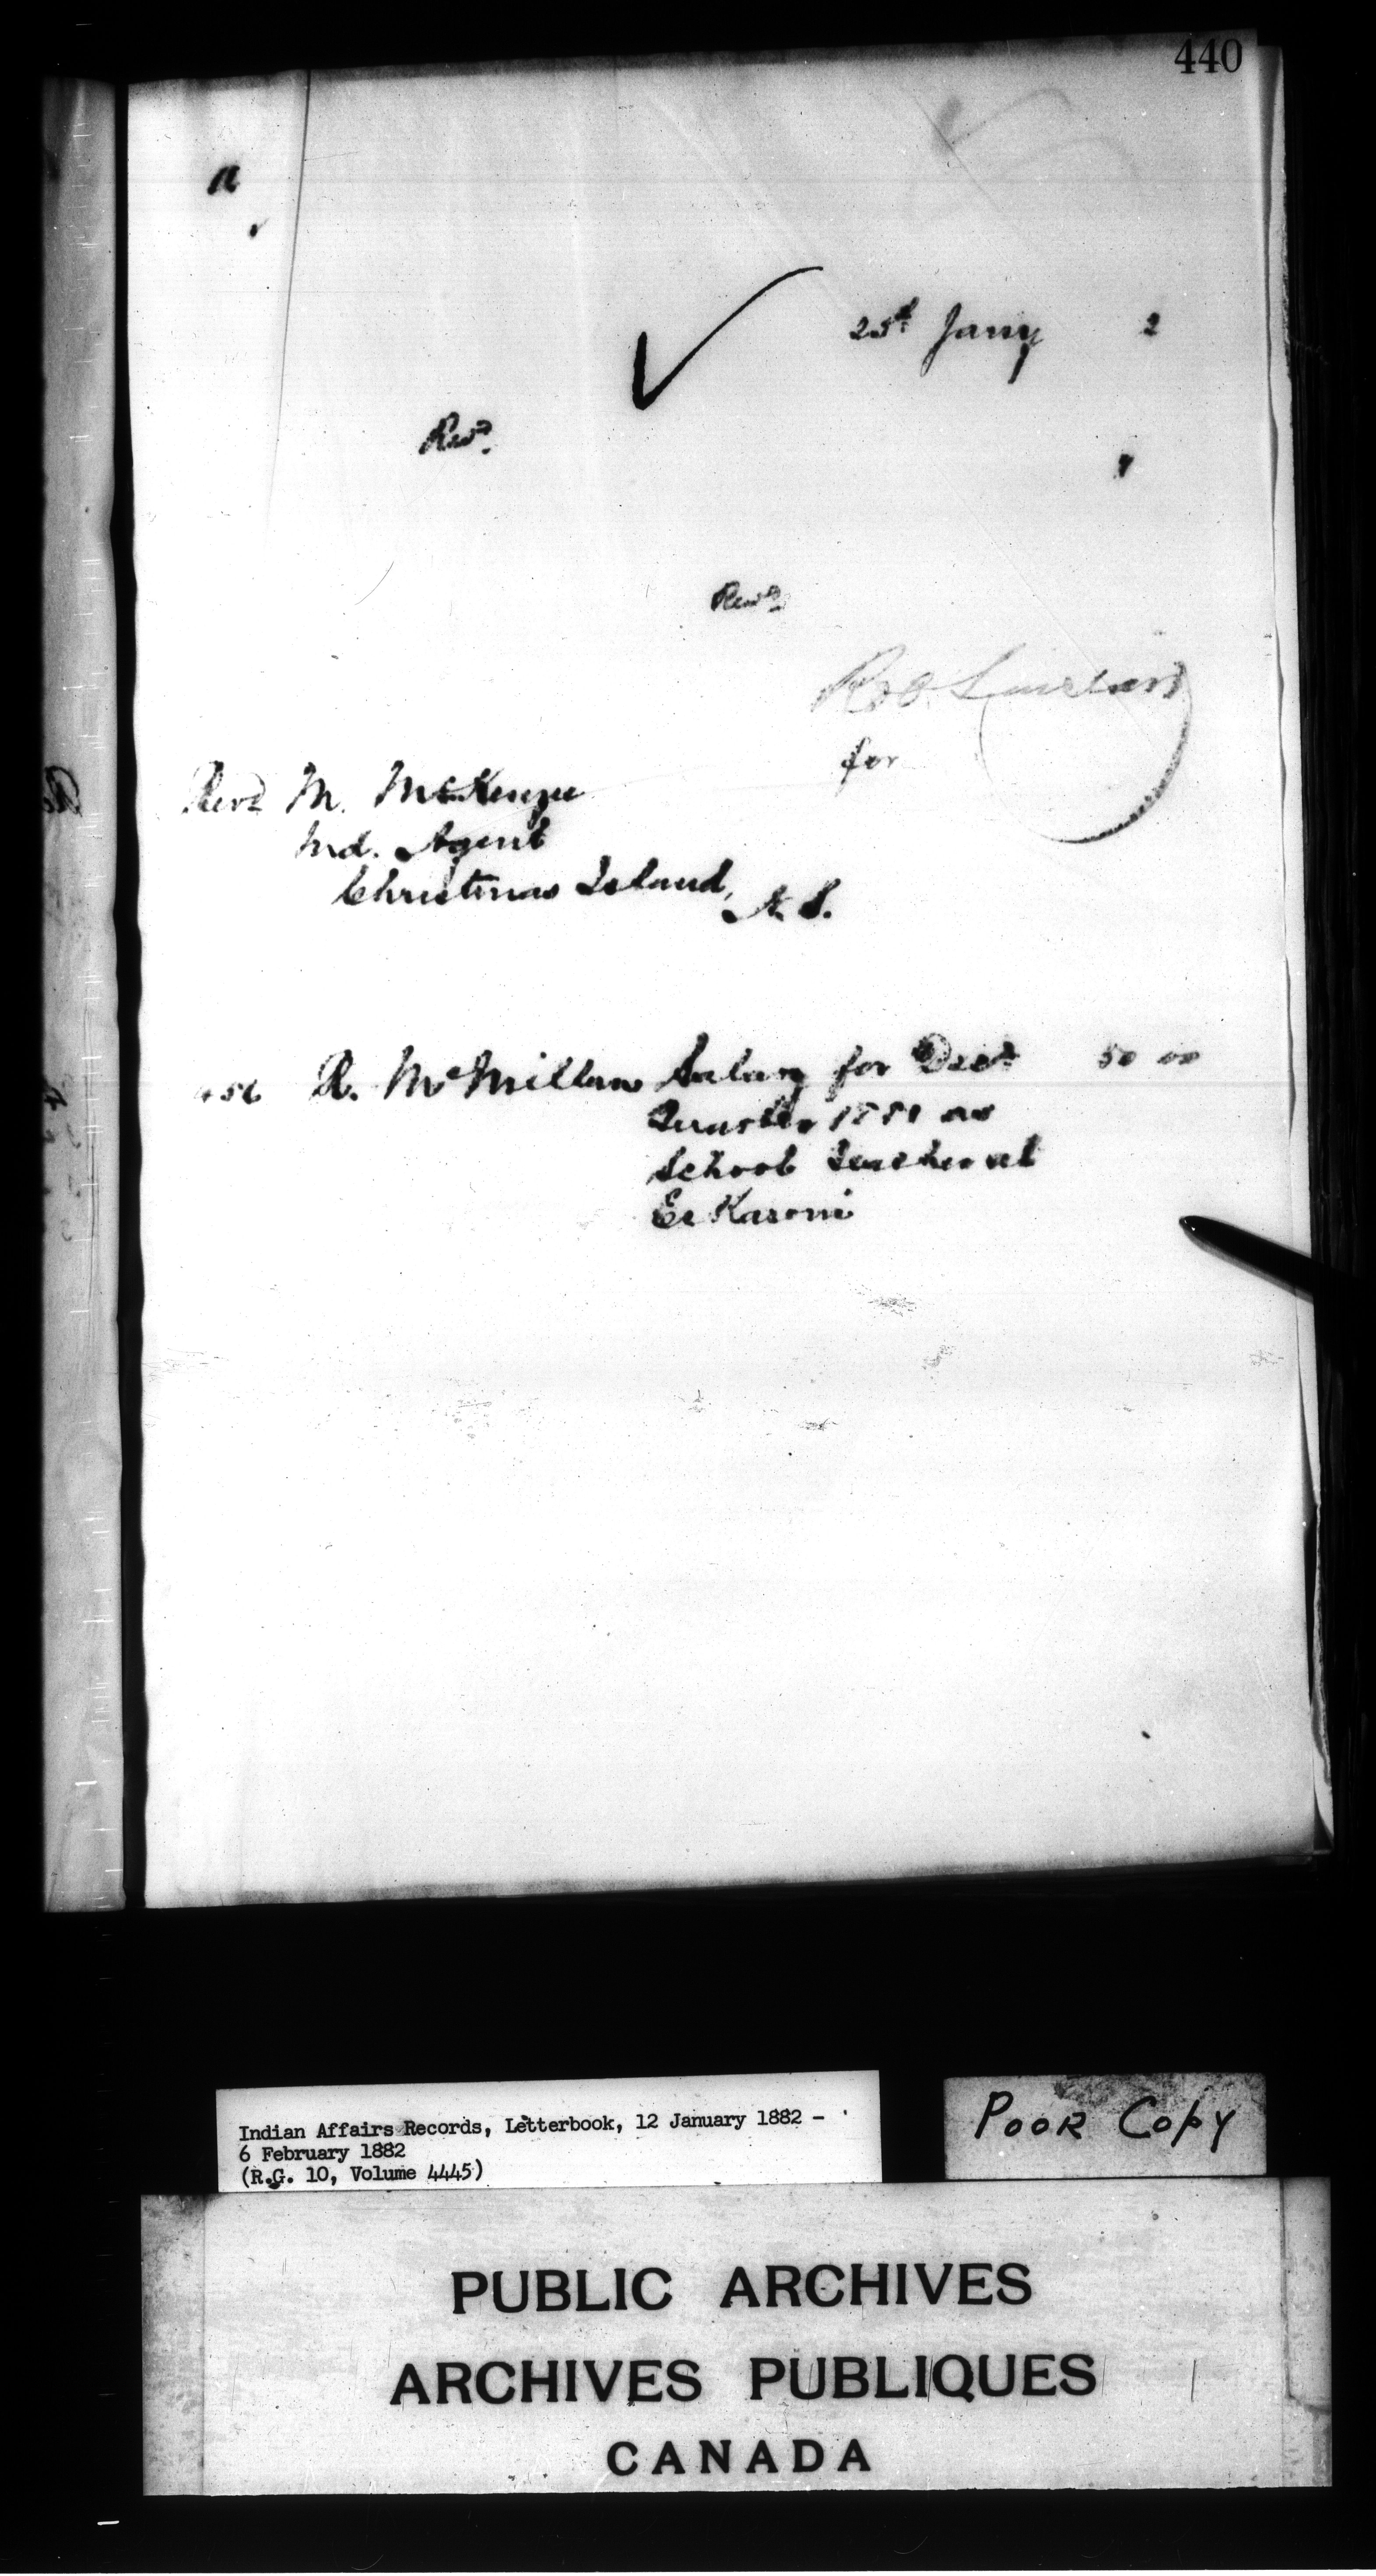 440
25th Jany 2
Revd.
Revd.
for
Revd M. McKenzie
Ind. Agent
Christmas Island,
N.S.
456 R. McMillan Salary for Decr 50 00
Quarter 1881 as
School Teacher at
EsKasoni
Indian Affairs Records, Letterbook, 12 January 1882 -
6 February 1882
(R.G. 10, Volume 4445)
POOR COPY
PUBLIC ARCHIVES
ARCHIVES PUBLIQUES
CANADA